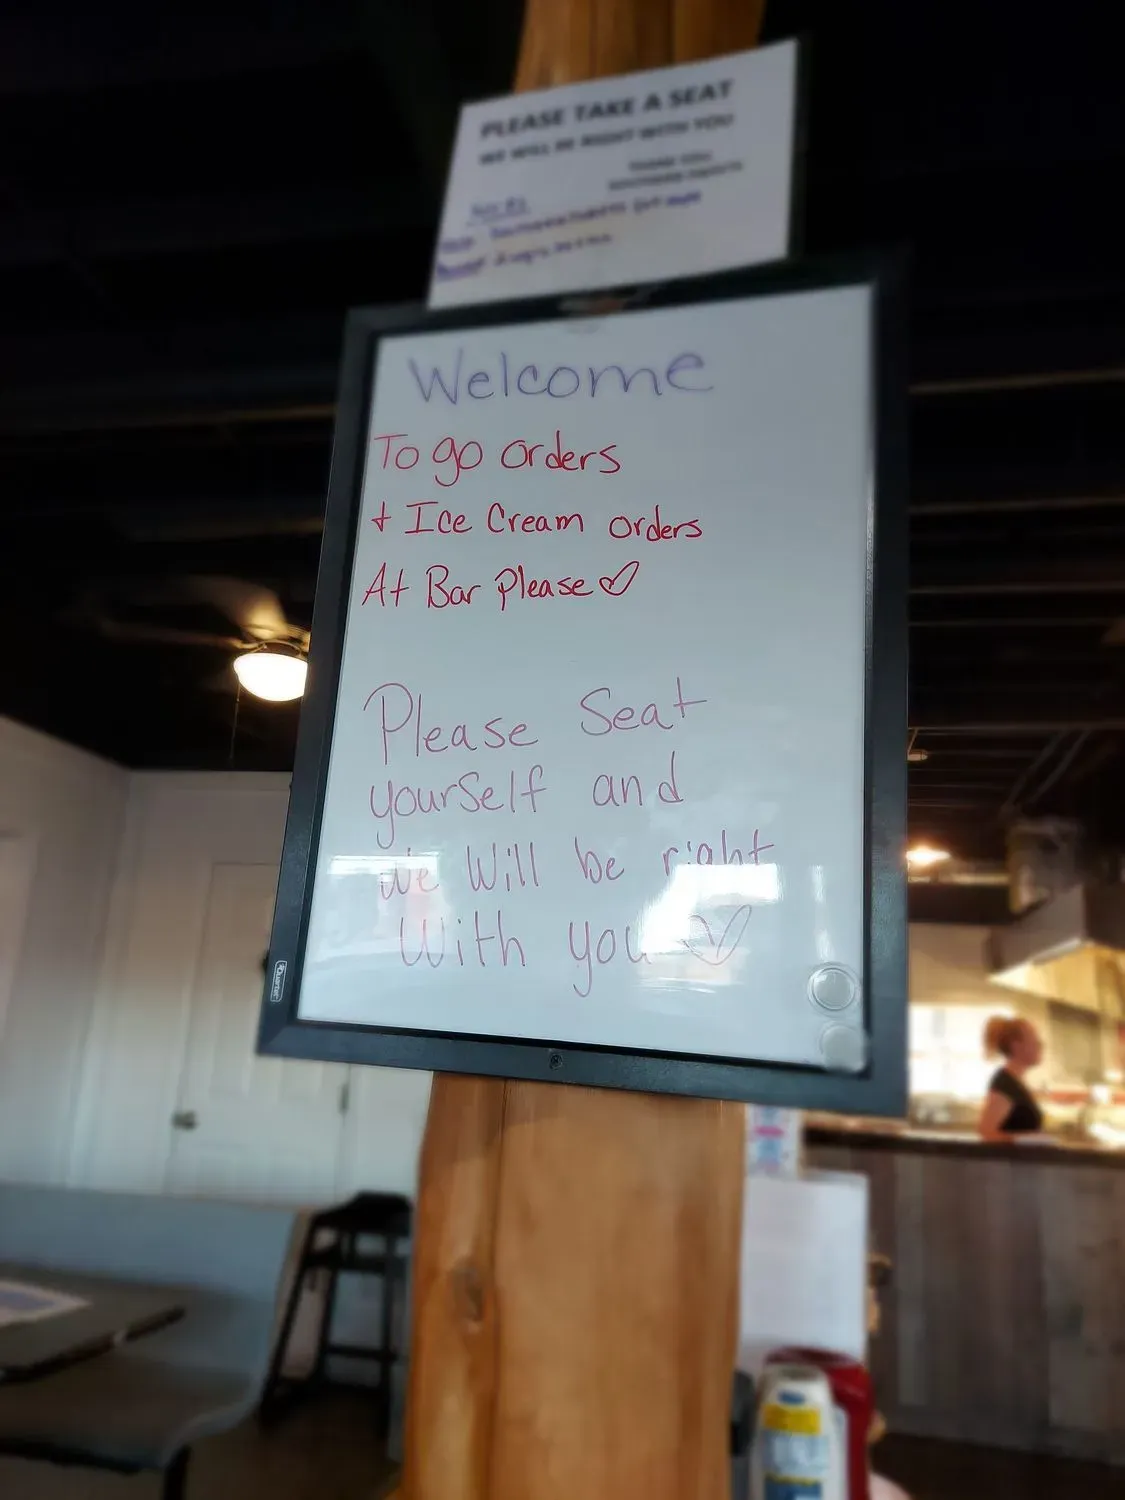 PLEASE TAKE A SEAT
WE WILL BE RIGHT WITH YOU
THANK YOU
Welcome
To go orders
+ Ice Cream orders
At Bar Please ♡
Please Seat
yourself and
we will be right
with you ♡
Quartet